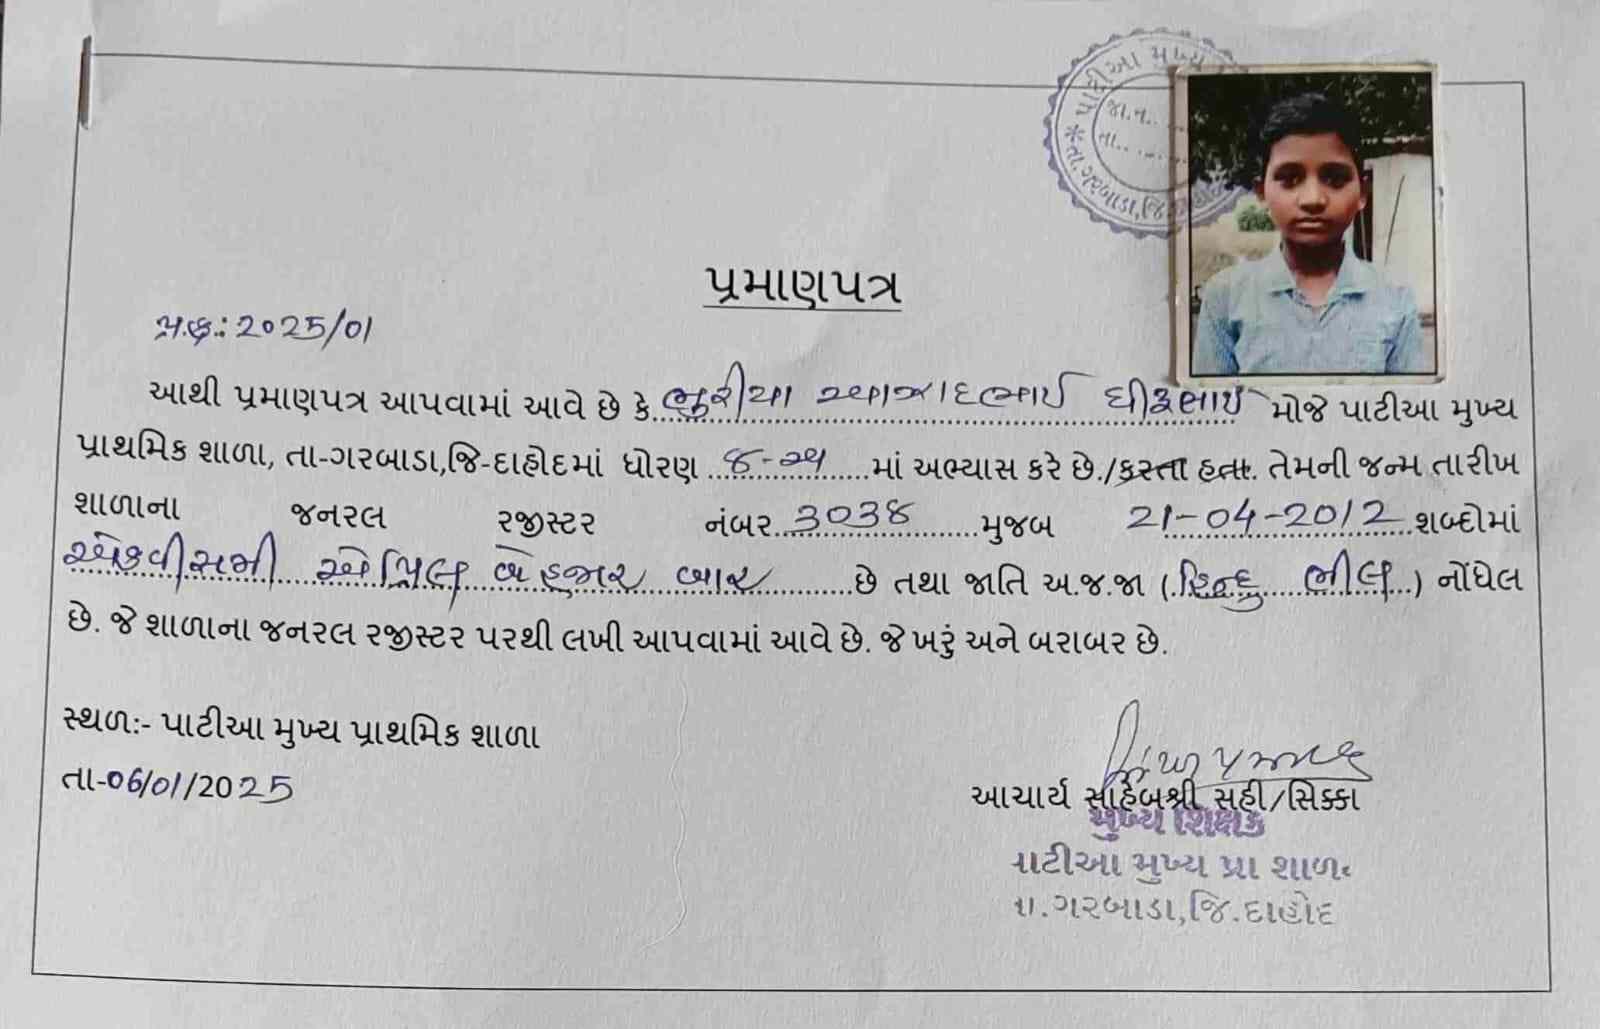 પાટીઆ મુખ્ય
જા.ન.. ...
તા.. .....
* તા.ગરબાડા,જિ.
પ્રમાણપત્ર
પ્ર.ક્ર.: 2025/01
આથી પ્રમાણપત્ર આપવામાં આવે છે કે..ભુરીયા આઝાદભાઈ ધીરુભાઈ મોજે પાટીઆ મુખ્ય
પ્રાથમિક શાળા, તા-ગરબાડા,જિ-દાહોદમાં ધોરણ ..૪-અ.....માં અભ્યાસ કરે છે./કરતા હતા. તેમની જન્મ તારીખ
શાળાના જનરલ રજીસ્ટર નંબર..303૪.......મુજબ 21-04-2012..શબ્દોમાં
એકવીસમી એપ્રિલ બે હજાર બાર.........છે તથા જાતિ અ.જ.જા (.હિન્દુ ભીલ..) નોંધેલ
છે. જે શાળાના જનરલ રજીસ્ટર પરથી લખી આપવામાં આવે છે. જે ખરું અને બરાબર છે.
સ્થળ:- પાટીઆ મુખ્ય પ્રાથમિક શાળા
તા-06/01/2025
આચાર્ય સાહેબશ્રી સહી/સિક્કા
મુખ્ય શિક્ષક
પાટીઆ મુખ્ય પ્રા શાળા
તા.ગરબાડા,જિ.દાહોદ